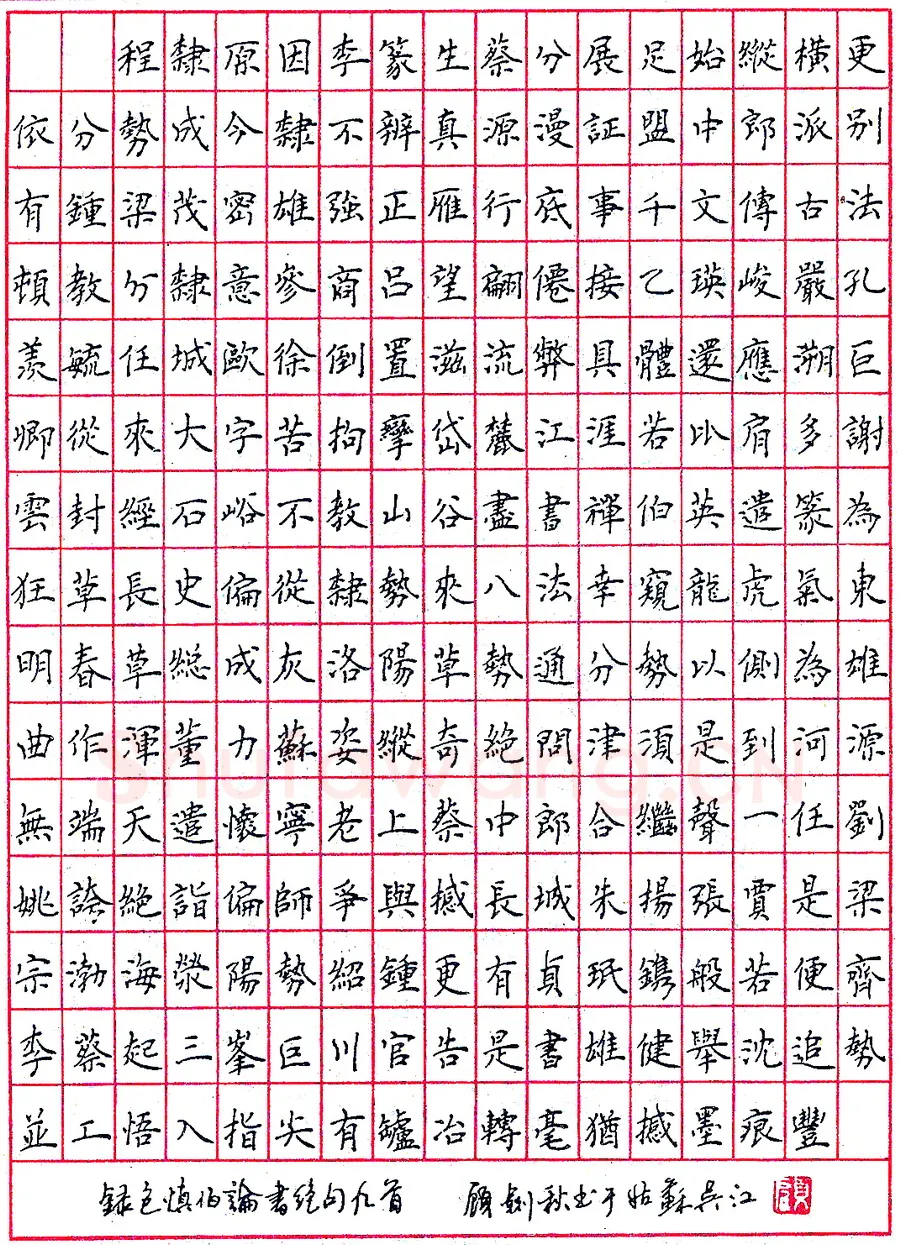 程隸原因李篆生蔡分展足始縱橫更
依分勢成今隸不辨真源漫証盟中郎派別
有鍾梁茂密雄強正雁行底事千文傳古法
頓教分隸意參商呂望翩僊接乙瑛峻嚴孔
羨毓任城歐徐倒置滋流弊具體還應溯巨
卿從來大字苦拘攣岱麓江涯若比肩多謝
雲封經石峪不教山谷盡書禪伯英遣篆為
狂草長史偏從隸勢來八法幸窺龍虎氣東
明春草總成灰洛陽草勢通分勢以側為雄
曲作渾董力蘇姿縱奇絕問津須是到河源
無端天遣懷寧老上蔡中郎合繼聲一任劉
姚誇絕詣偏師爭與撼長城朱揚張賈是梁
宗渤海滎陽勢紹鍾更有貞珉鐫般若便齊
李蔡起三峯巨川官告是書雄健舉沈追勢
並工悟入指尖有罏冶轉毫猶撼墨痕豐
錄包慎伯論書絕句九首 顧劍秋書于姑蘇吳江
Shufawang.CN